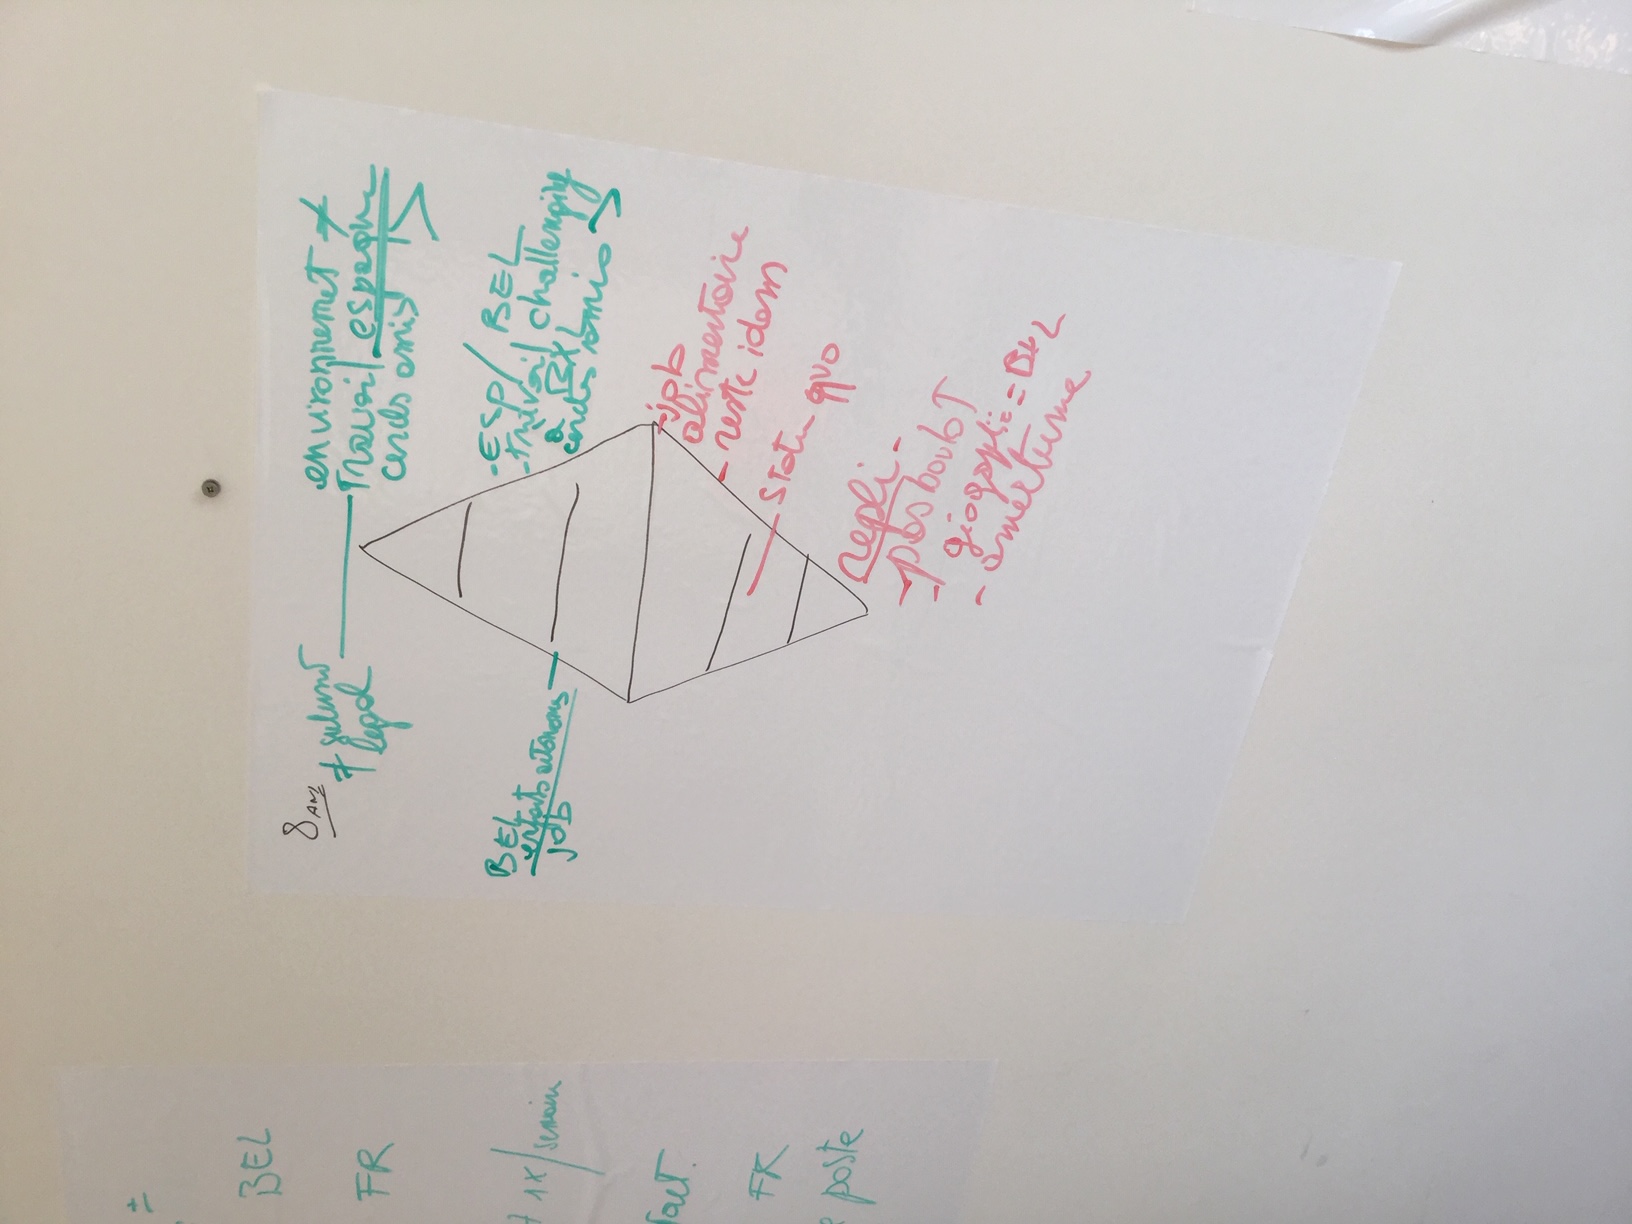 8 ANS
≠
legal
environnemet ≠
Travail espagne
cercls amis
BEL
enfants autonomes
job
- ESP/BEL
- travail challenging
à BXL
cercles amis
- job
alimentaire
- reste idem
Statu quo
repli -
- pas bouto
- = BEL
- amertume
±
BEL
FR
1X/semain
FR
poste